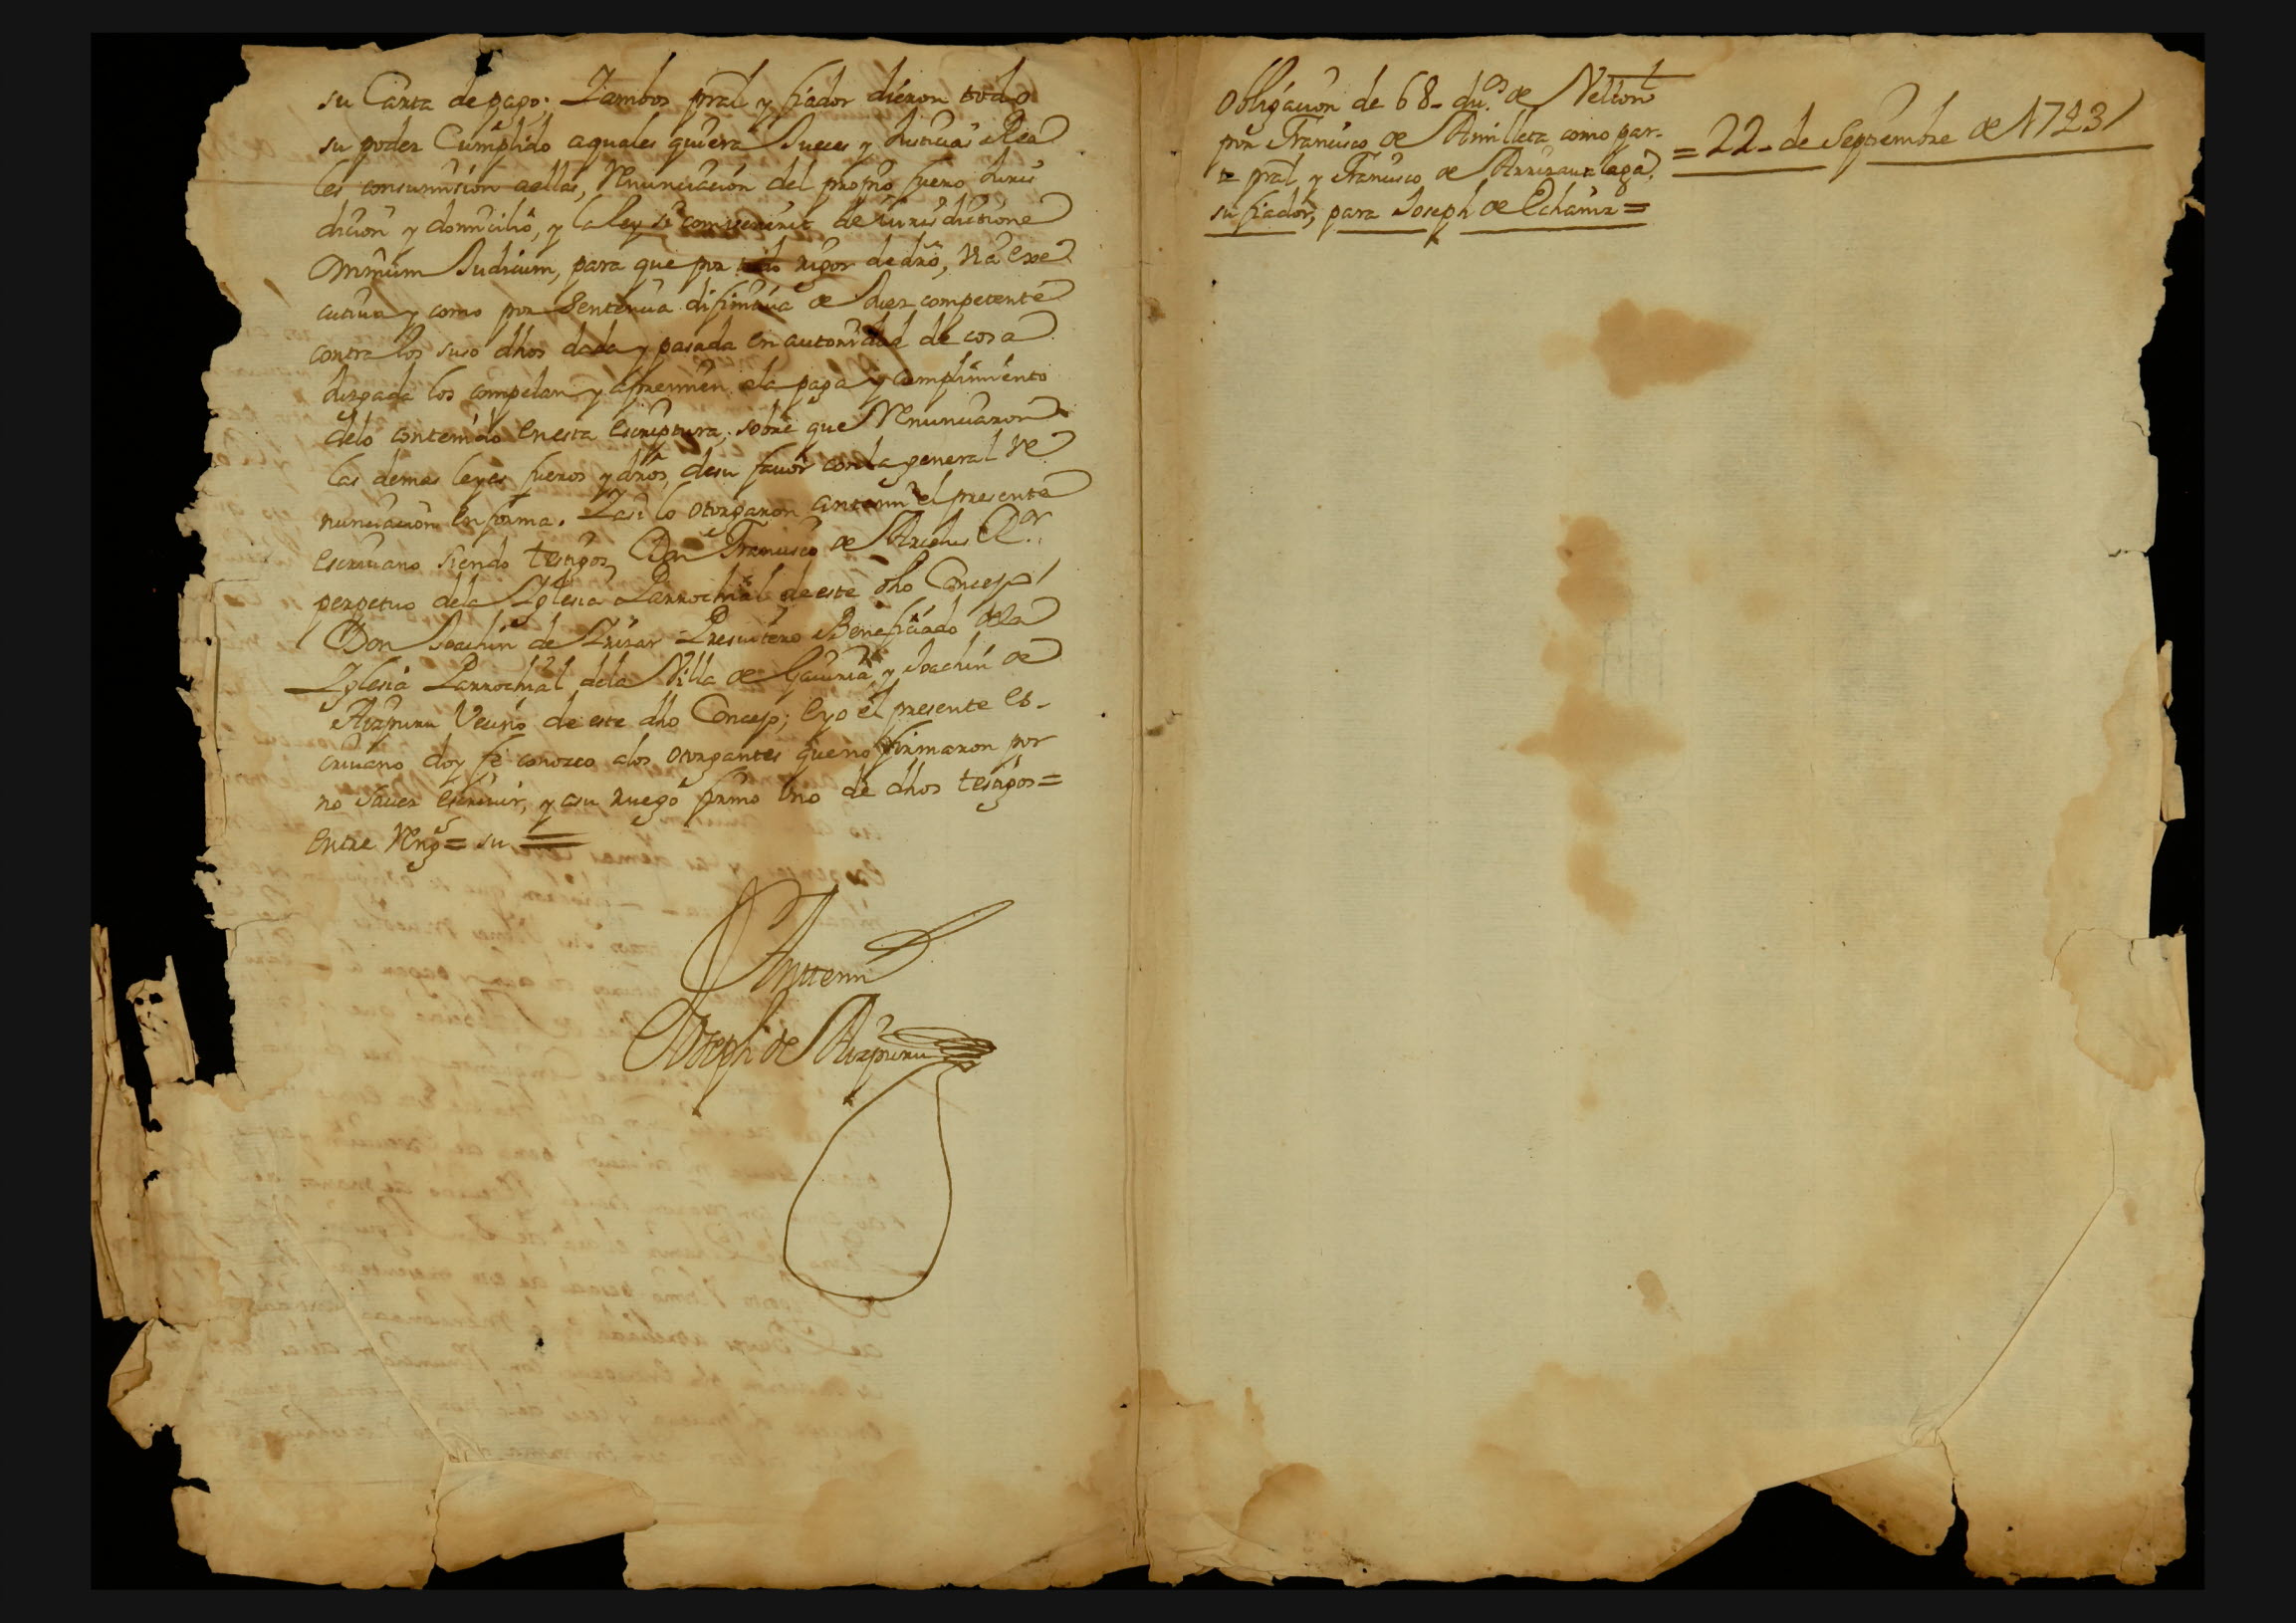 su Carta de pago. Y ambos pral y fiador dieron todo
su poder Cumplido a quales quiera Jueces y Justicias Rea
les con sumision a ellas, Renunciacion del proprio fuero Juris
dicion y domicilio, y la ley si convenerit de Jurisdictione
Omnium Judicum, para que por todo rigor de dro, via exe
cutiva y como por Sentencia difinitiva de Juez competente
contra los suso dhos dada y pasada en autoridad de cosa
Juzgada los compelan y apremien a la paga y cumplimiento
de lo contenido en esta Escriptura, sobre que Renunciaron
las demas leyes fueros y dros de su favor con la general Re
nunciacion en forma. Y asi lo otorgaron antemi el presente
escrivano siendo testigos Don Francisco de Ror
perpetuo de la Yglesia Parrochial de este dho Concejo
Don Joachin de Presvitero Beneficiado de la
Yglesia Parrochial de la Villa de Gaviria y Joachin de
Aizpuru Vecino de este dho Concejo; e yo el presente es-
crivano doy fe conozco a los otorgantes que no firmaron por
no saver escrivir, y a su ruego firmo uno de dhos testigos =
Entre Rengs = su =
Anttemi
Joseph de Aizpuru
Obligacion de 68- dus de Vellon
por Francisco de Arrilleta como par-
te pral y Francisco de Arrizavalaga
su fiador, para Joseph de Echaniz =
= 22- de Septiembre de 1723